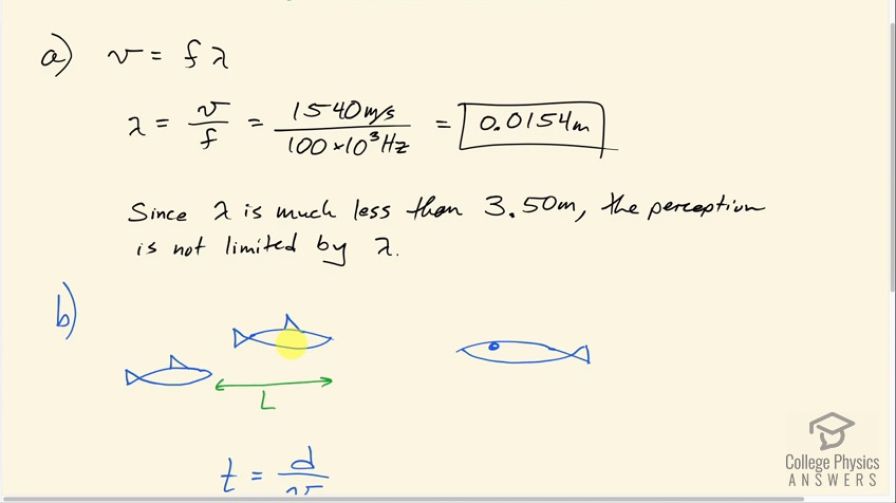 a) v = f λ
λ = v/f = 1540 m/s / 100 × 10³ Hz = 0.0154 m
Since λ is much less than 3.50m, the perception
is not limited by λ.
b)
L
t = d/v
College Physics
ANSWERS